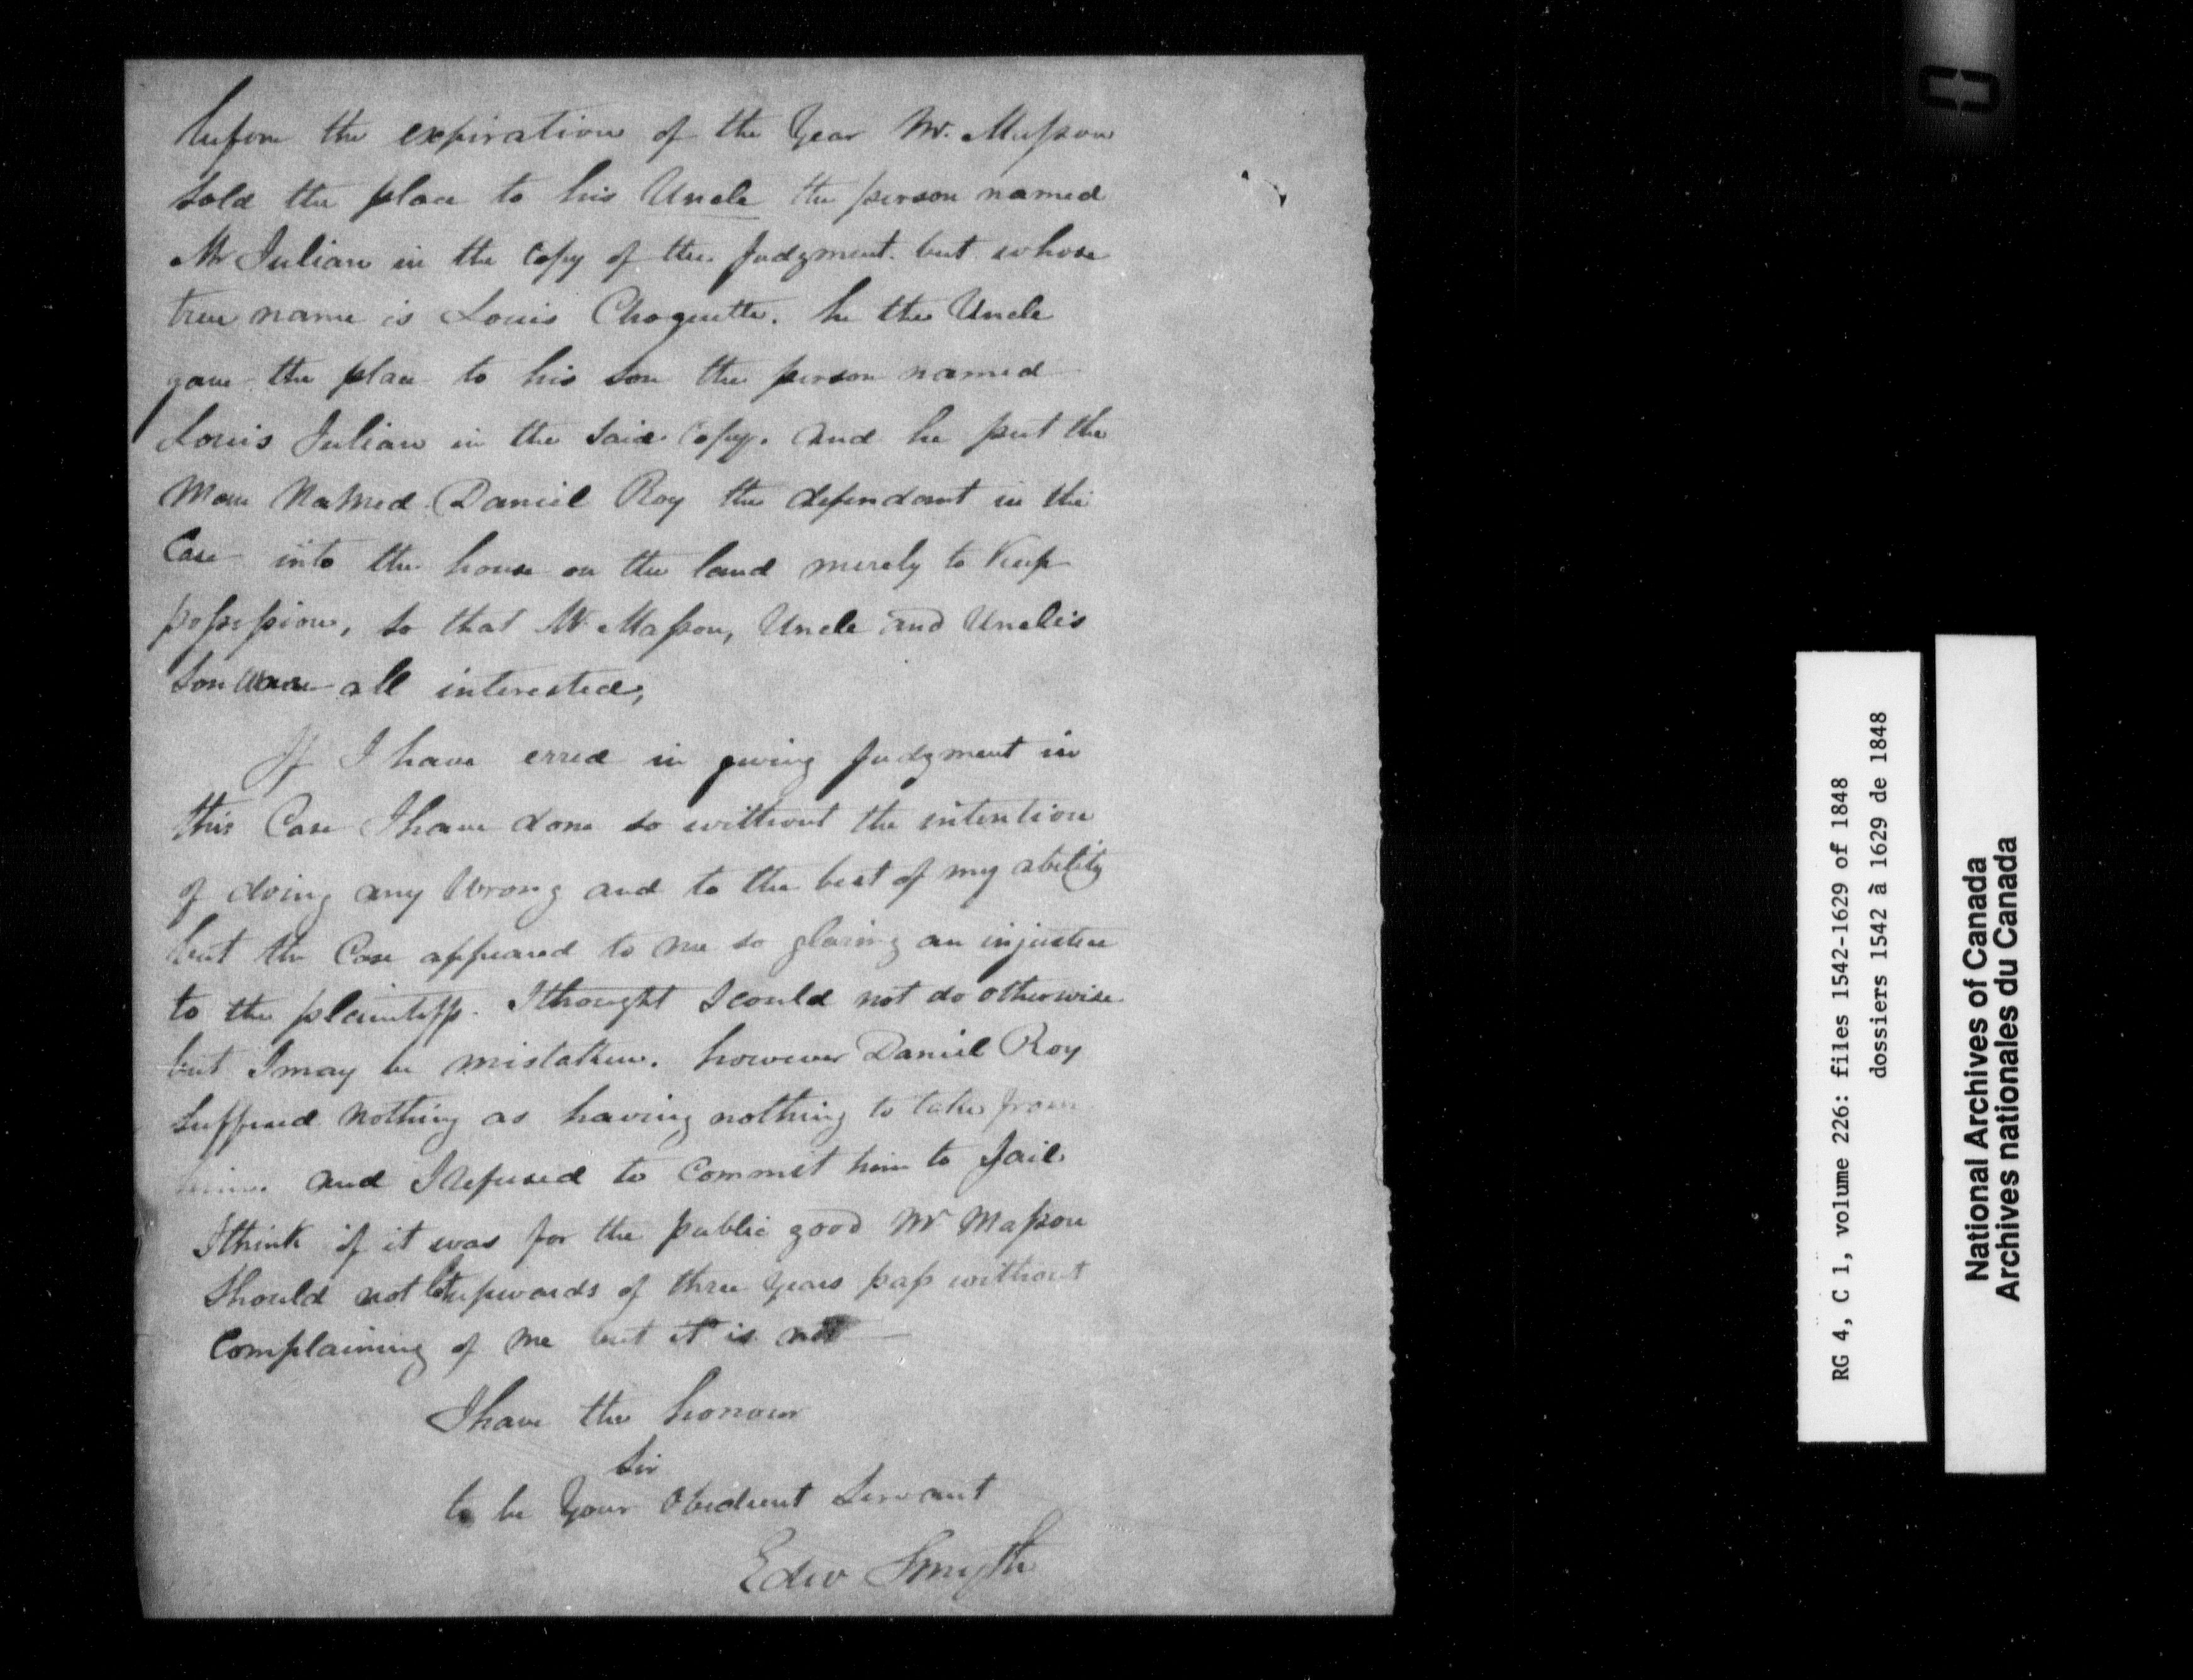 before the expiration of the Year Mr. Masson
Sold the place to his Uncle the person named
Mr Julian in the Copy of the Judgment. but whose
true name is Louis Choquette. he the Uncle
gave the place to his Son the person named
Louis Julian in the Said Copy. and he put the
Man Named Daniel Roy the defendant in the
Case into the house on the land merely to Keep
possession, So that Mr Masson, Uncle and Uncle's
Son were all interested,
If I have erred in giving Judgment in
this Case I have done so without the intention
of doing any Wrong and to the best of my ability
but the Case appeared to me so glaring an injustice
to the plaintiff. I thought I could not do otherwise
but I may be mistaken. however Daniel Roy
Suffered Nothing as having nothing to take from
him. and I Refused to Commit him to Jail.
I think if it was for the public good Mr Masson
Should not let upwards of three years pass without
Complaining of Me but it is not
I have the honour
Sir
to be Your Obedient Servant
Edw Smyth
RG 4, C 1, volume 226: files 1542-1629 of 1848
dossiers 1542 à 1629 de 1848
National Archives of Canada
Archives nationales du Canada